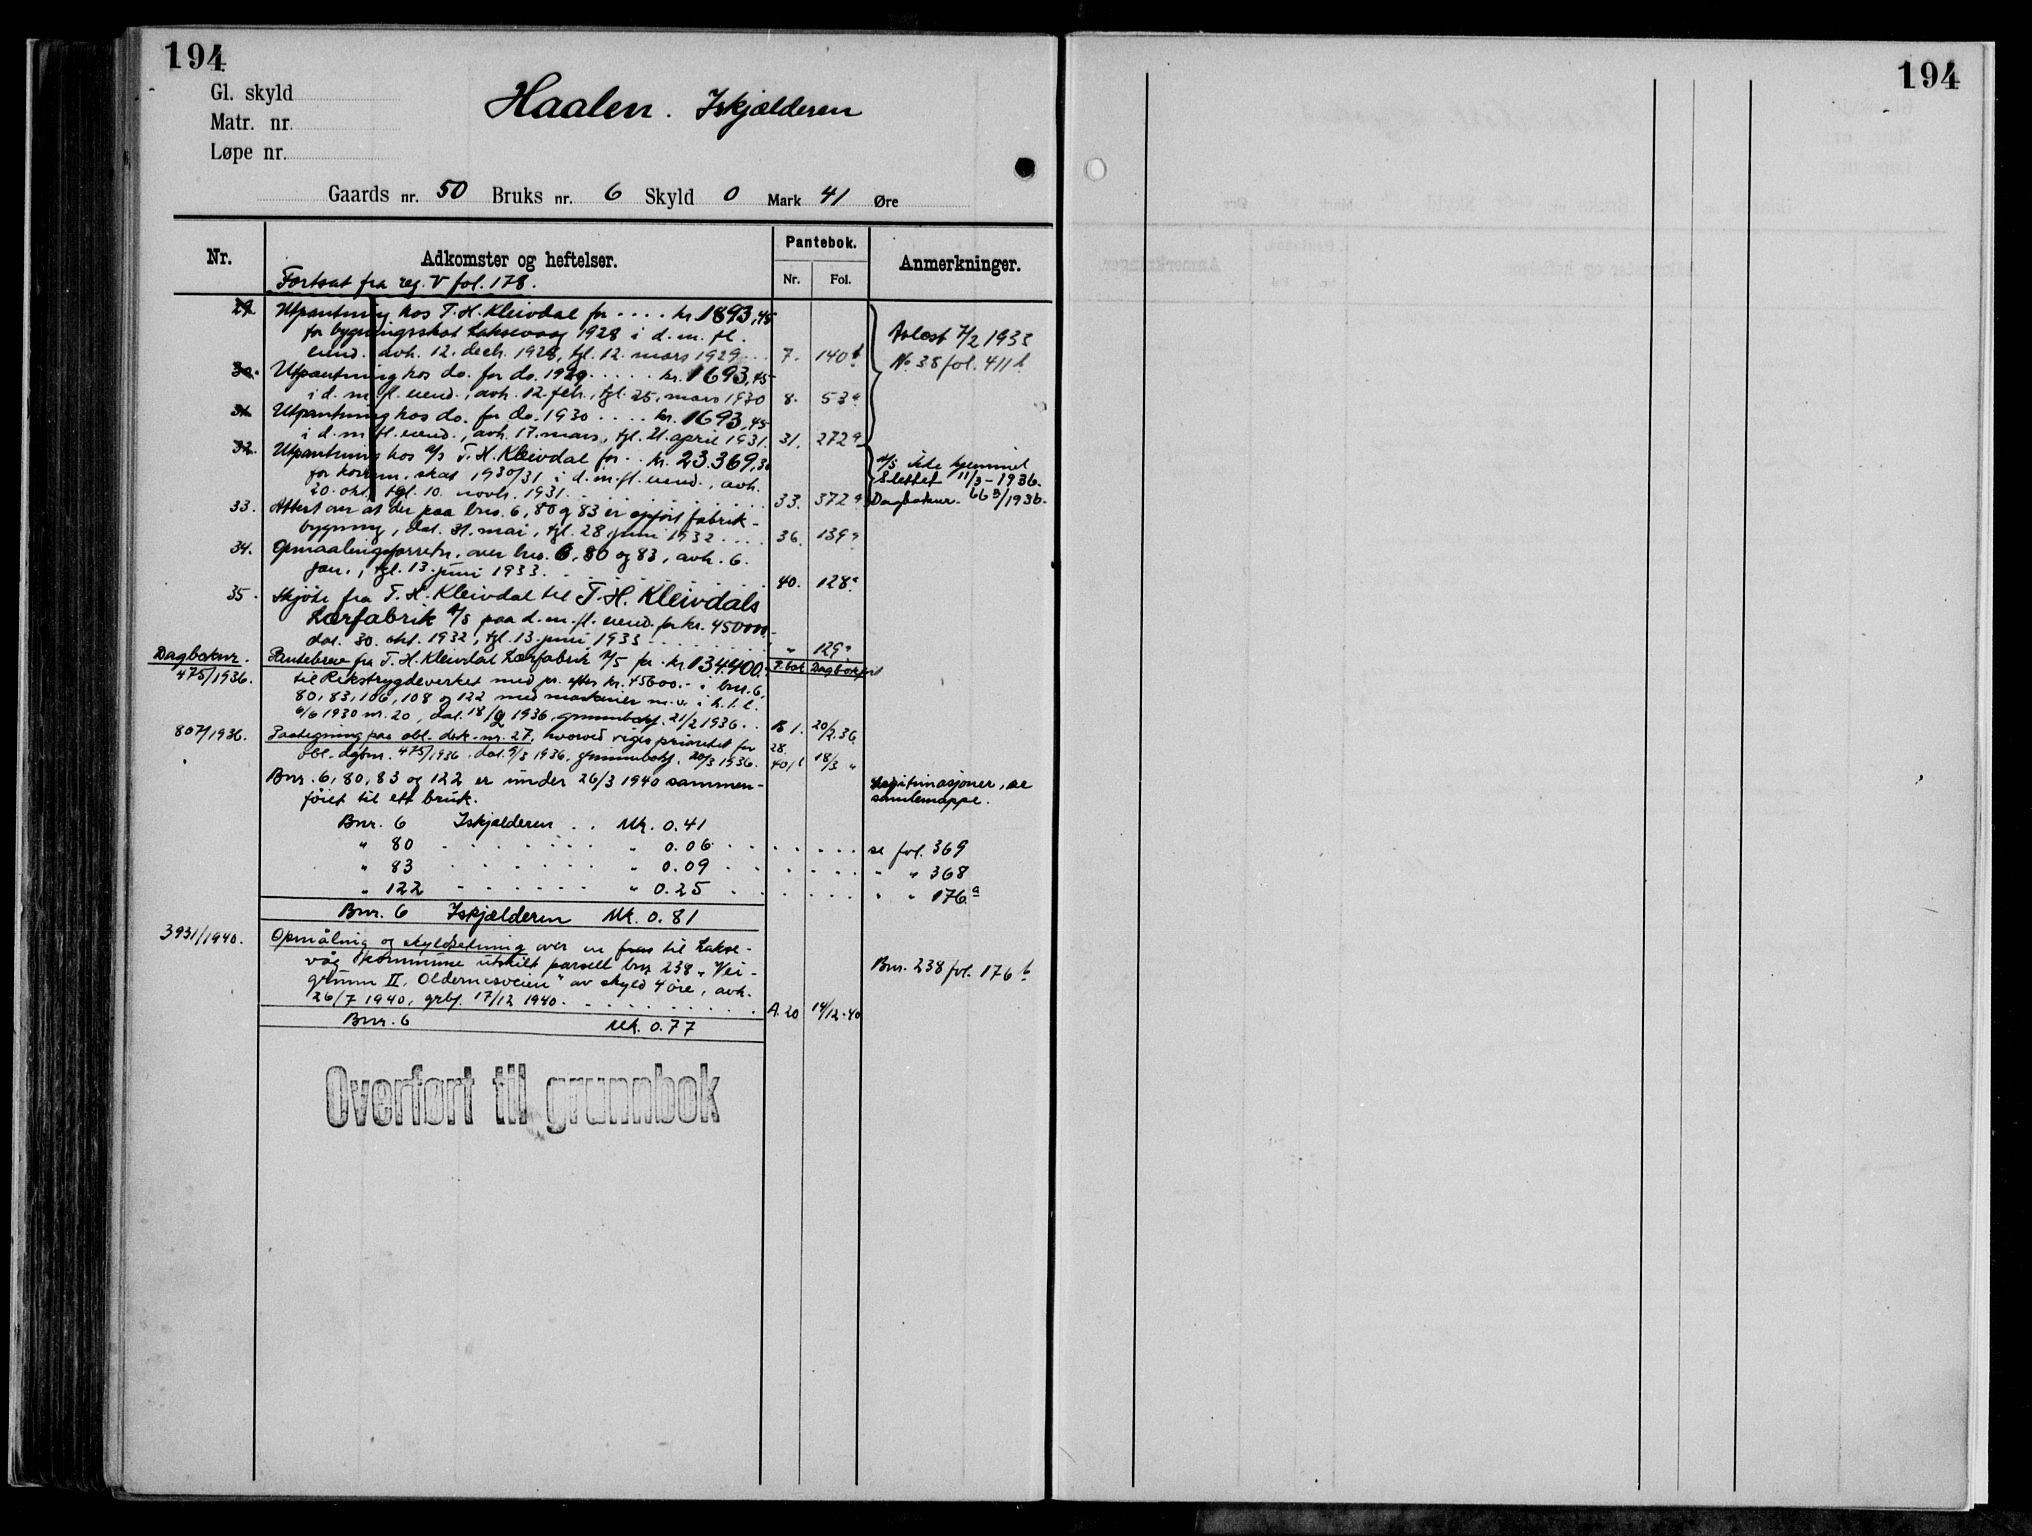 194
194
Gl. skyld
Matr. nr.
Løpe nr.
Haalen. Iskjælderen
Gaards nr. 50 Bruks nr. 6 Skyld 0 Mark 41 Øre
Nr. Adkomster og heftelser. Pantebok. Anmerkninger.
Nr. Fol.
Fortsat fra reg. V fol. 178.
29. Utpantning hos T. H. Kleivdal for .... kr. 1893,45
for bygningsskat Laksevaag 1928 i d. m. fl.
eiend. avh. 12. decb. 1928, tgl. 12. mars 1929 ... 7. 140 b
Avlest 7/2 1933
No 38 fol. 411 b
30. Utpantning hos do. for do. 1929 ..... kr. 1693,45
i d. m. fl. eiend., avh. 12. feb., tgl. 25. mars 1930 8. 53 a
31. Utpantning hos do. for do. 1930 .... kr. 1693,45
i d. m. fl. eiend., avh. 17. mars, tgl. 21. april 1931. 31. 272 a
32. Utpantning hos a/s T. H. Kleivdal for .. kr. 23.369,30
for komm. skat 1930/31 i d. m. fl. eiend., avh.
20. okt., tgl. 10. novb. 1931 ... 33. 372 a
a/s ikke hjemmel
Slettet 11/3-1936.
Dagboknr. 663/1936.
33. Attest over at der paa bno. 6, 80 og 83 er opført fabrik-
bygning, dat. 31. mai, tgl. 28. juni 1932 .... 36. 139 a
34. Opmaalingsforretn. over bno. 6, 80 og 83, avh. 6.
jan., tgl. 13. juni 1933. 40. 128 a
35. Skjøte fra T. H. Kleivdal til T. H. Kleivdals
Lærfabrik A/S paa d. m. fl. eiend. for kr. 45000.-
dat. 30. okt. 1932, tgl. 13. juni 1933 " 129 a
Dagboknr. 475/1936. Pantebrev fra T. H. Kleivdal Lærfabrik A/S for kr. 134.400.- P. bok Dagbokført
til Rikstrygdeverket med pr. efter kr. 45600.- i bnr. 6,
80, 83, 106, 108 og 122 med maskiner m. v. i h. t. l.
6/6 1930 nr. 20, dat. 18/2 1936, grunnbokf. 21/2 1936 .. B 1. 20/2.36
807/1936. Paategning paa obl. dok. nr. 27, hvorved viges prioritet for 28.
obl. dgbnr. 475/1936. dat. 9/3 1936, grunnbokf. 20/3 1936. 401 b 18/3 "
Bnr. 6, 80, 83 og 122 er under 26/3 1940 sammen-
føiet til ett bruk.
Legitimasjoner, se
samlemappe.
Bnr. 6 Iskjælderen .. Mk. 0.41
" 80 ........ " 0.06 .. se fol. 369
" 83 ....... " 0.09 .. " " 368
" 122 ...... " 0.25 .. " " 176 a
Bnr. 6 Iskjælderen Mk. 0.81
3931/1940. Opmåling og skyldsetning over en fras til Lakse-
våg kommune utskilt parsell bnr. 238 "Vei-
grunn II, Oldernesveien" av skyld 4 øre, avh.
26/7 1940, grbf. 17/12 1940. .......... A. 20 14/12-40
Bnr. 238 fol. 176 b
Bnr. 6 Mk. 0.77
Overført til grunnbok